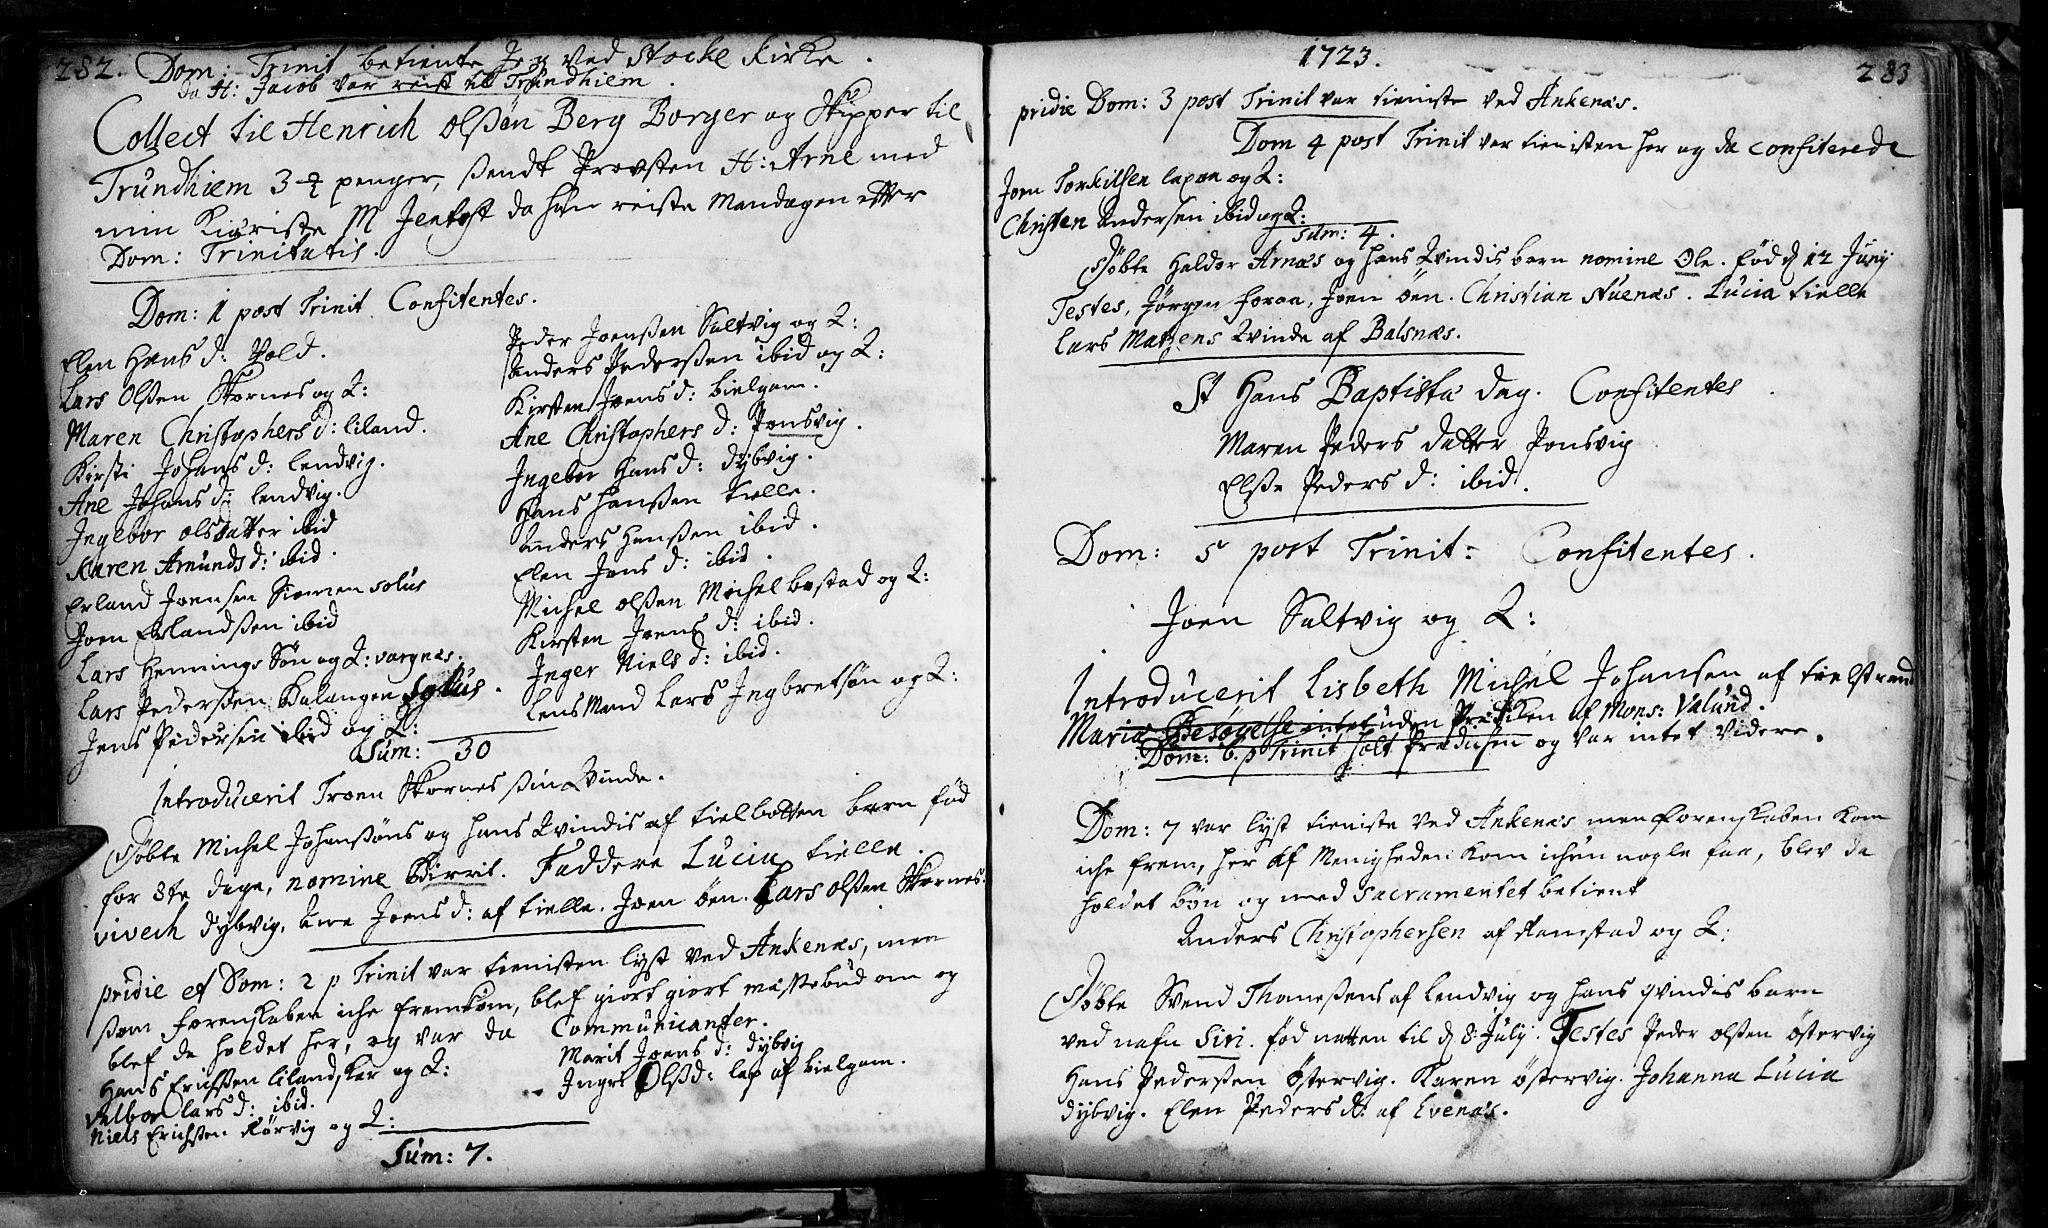 282. Dom: Trinit betiente Jeg ved Stocke Kirke.
da H: Jacob var reist till Trundhiem.
Collect til Henrich Olßen Berg Borger og Skipper til
Trundhiem 3 ½ penger, sendt Provsten H: Arne med
min da han reiste Mandagen etter
Dom: Trinitatis.
Dom: 1 post Trinit. Confitentes.
Elen Hans d: Vold.
Lars Olßen Skornes og Q:
Maren Christophers d: liland.
Kirsti Johans d: lendvig.
Ane Johans d: lendvig.
Ingebor olsdatter ibid
Karen Amunds d: ibid.
Erland Joensen solus
Joen Erlandßen ibid
Lars Hennings Søn og Q: vargnæs.
Lars Pedersen Balangen solus.
Jens Pedersen ibid og Q:
Peder Joenßen Saltvig og Q:
Anders Pederßen ibid og Q:
Kirsten Joens d: bielgam.
Ane Christophers d: Ponsvig.
Ingebor Hans d: dybvig.
Hans Hanßen tielle.
Anders Hanßen ibid.
Elen Jens d: ibid.
Michel olßen Michelbostad og Q:
Kirsten Joens d: ibid.
Inger Niels d: ibid.
Lens Mand Lars Ingbretsøn og Q:
Sum: 30
Introducerit Troen Skornes sin Qvinde.
Døbte Michel Johanßøns og hans Qvindis af tielbotten barn fød
for 8te dage, nomine Birrit. Faddere Lucia tielle.
vivech dybvig. Ane Joens d: af tielle. Joen øen. Lars olßen Skornes.
pridie et Dom: 2 p Trinit var tienisten lyst ved Ankenæs, men
ßom forenskaben iche fremkom, blef giort giort messebud om og
blef da holdet her, og var da Communicanter.
Hans Erichßen lilandskar og Q:
Valbor lars d: ibid.
Niels Erichßen Rørvig og Q:
Marit Joens d: dybvig
Ingri Olßd: lap af bielgam.
Sum: 7.
1723.
283
pridie Dom: 3 post Trinit var tieniste ved Ankenæs.
Dom 4 post Trinit var tienisten her og da confiterede
Joen Torkilsen lapaa og Q:
Christen Andersen ibid og Q:
Sum: 4.
Døbte Haldor Arnæs og hans Qvindis barn nomine Ole. fød d 12 Junij
Testes, Jørgen foraa, Joen øen. Christian Stuenæs. Lucia tielle
Lars Matzens Qvinde af Balsnæs.
St Hans Baptista dag. Confitentes
Maren Peders datter Ponsvig
Elße Peders d: ibid.
Dom: 5 post Trinit: Confitentes.
Joen Saltvig og Q:
Introducerit Lisbeth Michel Johansen af tielstrand
Maria Besøgelse intet uden Prediken af Mons: Valund.
Dom: 6 p Trinit holt Predichen og var intet videre.
Dom: 7 var lyst tieniste ved Ankenæs men forenskaben kom
iche frem, her af Menigheden kom ichun nogle faa, blev da
holdet bøn og med sacramentet betient
Anders Christophersen af Ramstad og Q:
Døbte Svend Thaneßens af lendvig og hans qvindis barn
ved nafn Siri. fød natten til d 8 Julij. Testes Peder olßen østervig
Hans Pederßen østervig. Karen østervig. Johanna Lucia
dybvig. Elen Peders d: af Evenæs.